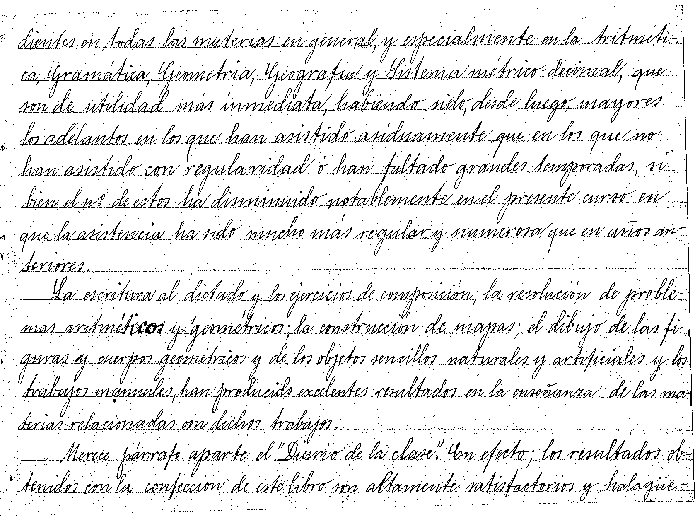 dientes en todas las materias en general, y especialmente en la Aritméti-
ca, Gramática, Geometria, Geografia y Sistema métrico decimal, que
son de utilidad mas inmediata, habiendo sido, desde luego, mayores
los adelantos en los que han asistido asiduamente que en los que no
han asistido con regularidad ó han faltado grandes temporadas, si
bien el nº de estos ha disminuido notablemente en el presente curso en
que la asistencia ha sido mucho más regular y numerosa que en años an-
teriores.
La escritura al dictado y los ejercicios de composición, la resolución de proble-
mas aritméticos y geométricos, la construcción de mapas, el dibujo de las fi-
guras y cuerpos geométricos y de los objetos sencillos naturales y artificiales y los
trabajos manuales, han producido excelentes resultados en la enseñanza de las ma-
terias relacionadas con dichos trabajos.
Merece párrafo aparte el "Diario de la clase". En efecto, los resultados ob-
tenidos con la confección de este libro son altamente satisfactorios y halagüe-